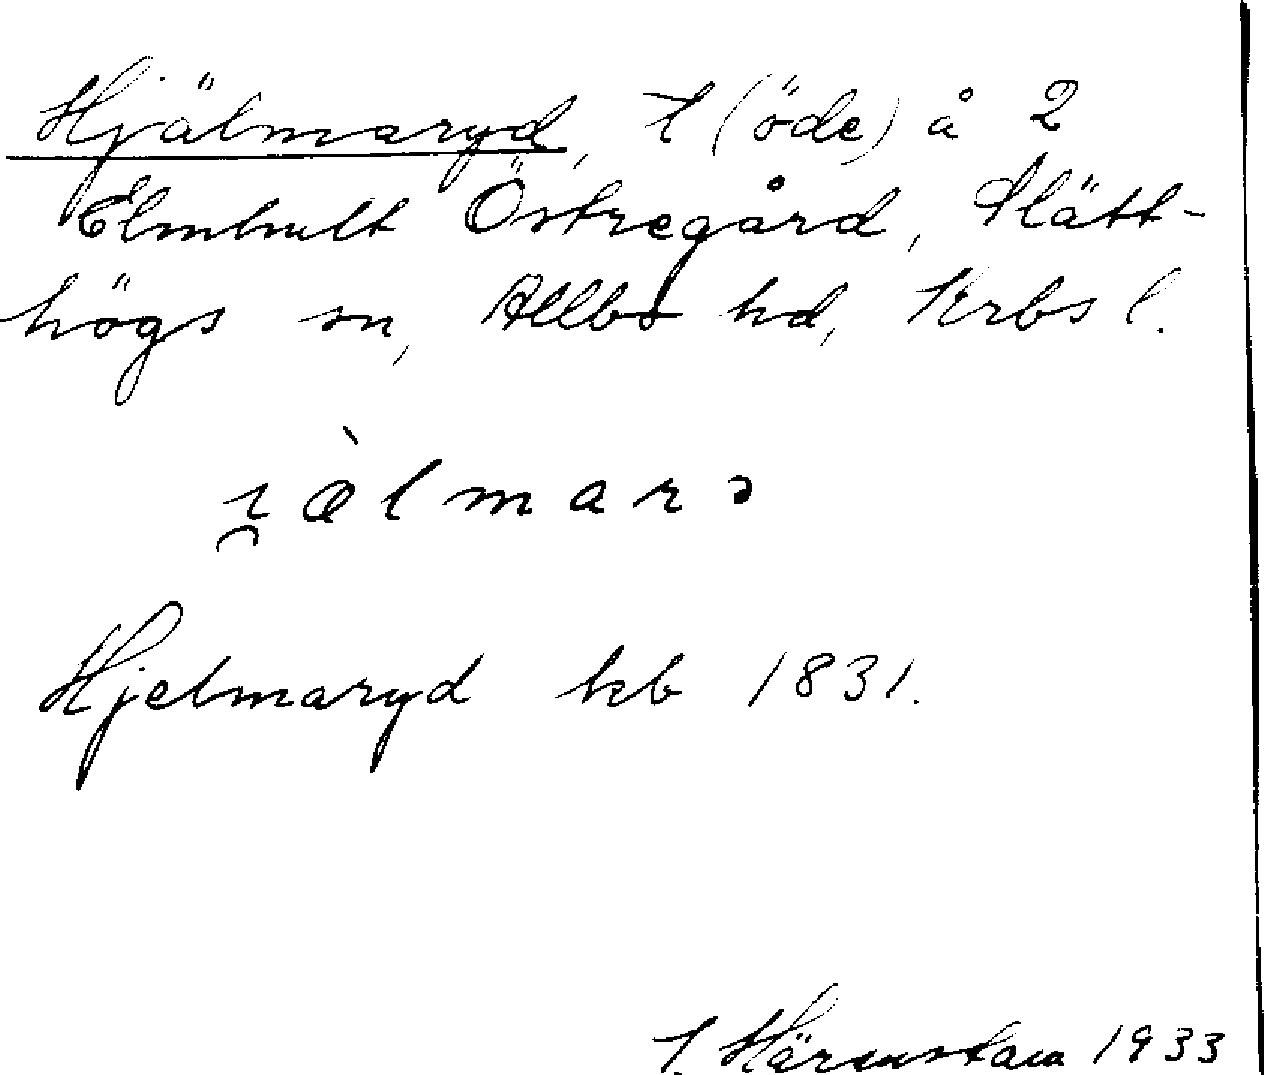 Hjälmaryd, t (öde) å 2
Elmhult Östregård, Slätt-
högs sn, Allbo hd, Krbs l.
i̯æ̀lmarə
Hjelmaryd hb 1831.
J. Härenstam 1933